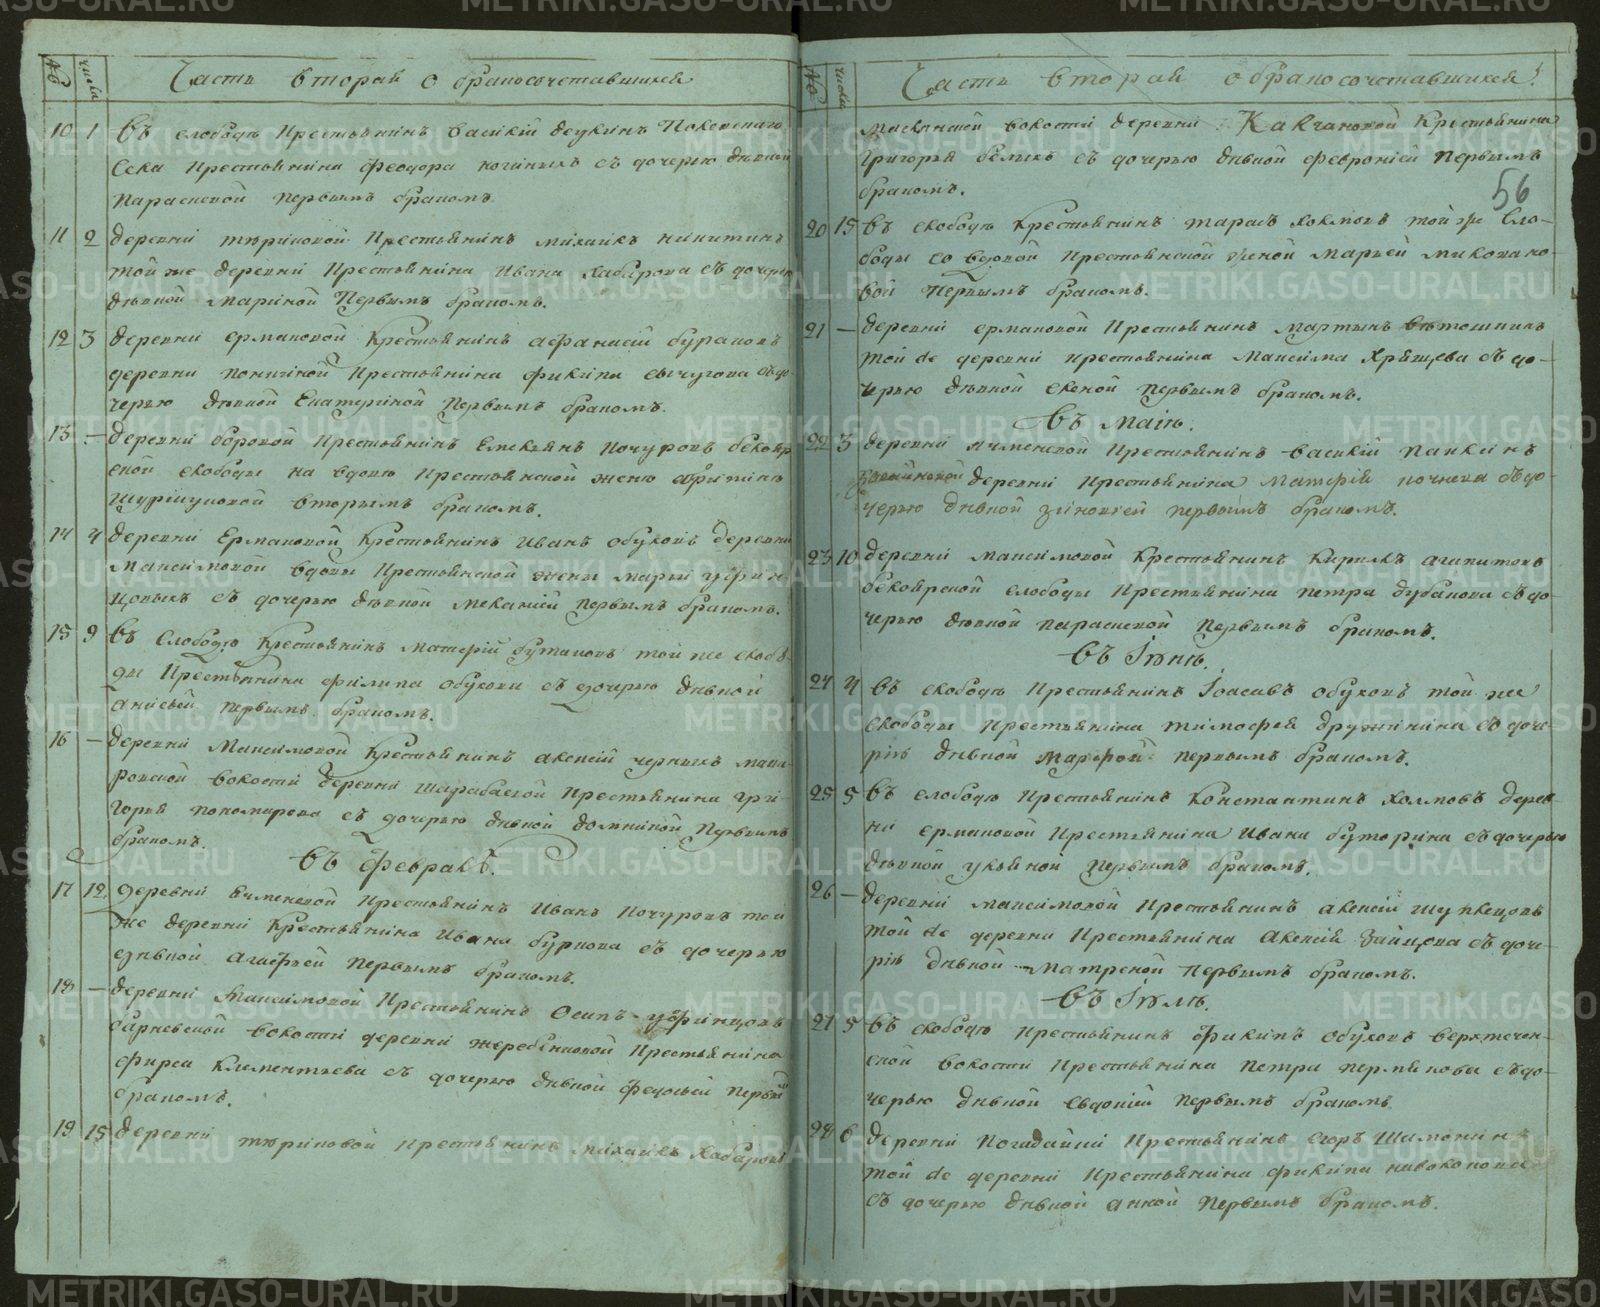 № числа Часть вторая о бракосочетавшихся
10 1 Въ слободѣ крестьянинъ Василій Деукинъ Поковскаго
села крестьянина Феодора ногиныхъ съ дочерью дѣвкой
Параскевой первымъ бракомъ
11 2 деревни тюриковой крестьянинъ михаилъ никитинъ
той же деревни крестьянина Ивана хабарова съ дочерью
дѣвкой Мариной Первымъ бракомъ.
12 3 деревни ермаковой крестьянинъ афанасій бураковъ
деревни крестьянина филипа сычугова съ до-
черью дѣвкой Екатериной Первымъ бракомъ.
13 — деревни боровой крестьянинъ Емельянъ Кочуровъ белояр
ской слободы на вдовѣ крестьянской женѣ
вторымъ бракомъ.
14 4 деревни Ермаковой крестьянинъ Иванъ обуховъ деревни
Максимовой вдовы крестьянской жены марьи уфин
цовыхъ съ дочерью дѣвкой меланіей первымъ бракомъ.
15 9 Въ Слободѣ крестьянинъ матфей бутаковъ той же слобо-
ды крестьянина филипа обухова съ дочерью дѣвкой
анисьей первымъ бракомъ.
16 — деревни Максимовой крестьянинъ алексѣй черныхъ маки-
ровской волости деревни шарабаевой крестьянина гри-
горья пономарева съ дочерью дѣвкой домникой первымъ
бракомъ.
Въ Февралѣ.
17 12 деревни крестьянинъ Иванъ Кочуровъ той
же деревни крестьянина Ивана буркова съ дочерью
дѣвкой агафьей первымъ бракомъ.
18 — деревни Максимовой крестьянинъ Осипъ уфинцовъ
волости деревни жеребенковой крестьянина
фирса Климентьева съ дочерью дѣвкой федосьей первы
бракомъ.
19 15 деревни тюриковой крестьянинъ михаилъ хабаровъ
№ числа Часть вторая о бракосочетавшихся
56
волости деревни Калчановой крестьянина
григорья бѣлыхъ съ дочерью дѣвкой февроніей первымъ
бракомъ.
20 15 Въ слободѣ крестьянинъ тарасъ холмовъ той же сло-
боды со вдовой крестьянской женой марьей миколаво-
вой первымъ бракомъ.
21 — деревни ермаковой крестьянинъ мартынъ ветошкинъ
той же деревни крестьянина максима хрящева съ до-
черью дѣвкой еленой первымъ бракомъ.
Въ маіѣ.
22 3 деревни ячменевой крестьянинъ василій панкинъ
деревни крестьянина матфея почкева съ до-
черью дѣвкой зиновіей первымъ бракомъ.
23 10 деревни максимовой крестьянинъ кирилъ агапитовъ
белоярской слободы крестьянина петра дубакова съ до-
черью дѣвкой параскевой первымъ бракомъ.
Въ Іюнѣ.
24 4 Въ слободѣ крестьянинъ Іоасавъ обуховъ той же
слободы крестьянина тимофея дружинина съ доче-
рію дѣвкой марфой первымъ бракомъ.
25 5 Въ слободѣ крестьянинъ константинъ холмовъ дерев-
ни ермаковой крестьянина ивана буторина съ дочерью
дѣвкой ульяной первымъ бракомъ.
26 — деревни максимовой крестьянинъ алексѣй шувкецовъ
той же деревни крестьянина алексѣя зайцова съ доче-
рію дѣвкой матреной первымъ бракомъ.
Въ Іюлѣ.
27 5 Въ слободѣ крестьянинъ филипъ обуховъ верхтечен-
ской волости крестьянина петра пермякова съ до-
черью дѣвкой евдокіей первымъ бракомъ
28 6 деревни Погадайки крестьянинъ егоръ шимокинъ
той же деревни крестьянина филипа
съ дочерью дѣвкой анной первымъ бракомъ.
METRIKI.GASO-URAL.RU